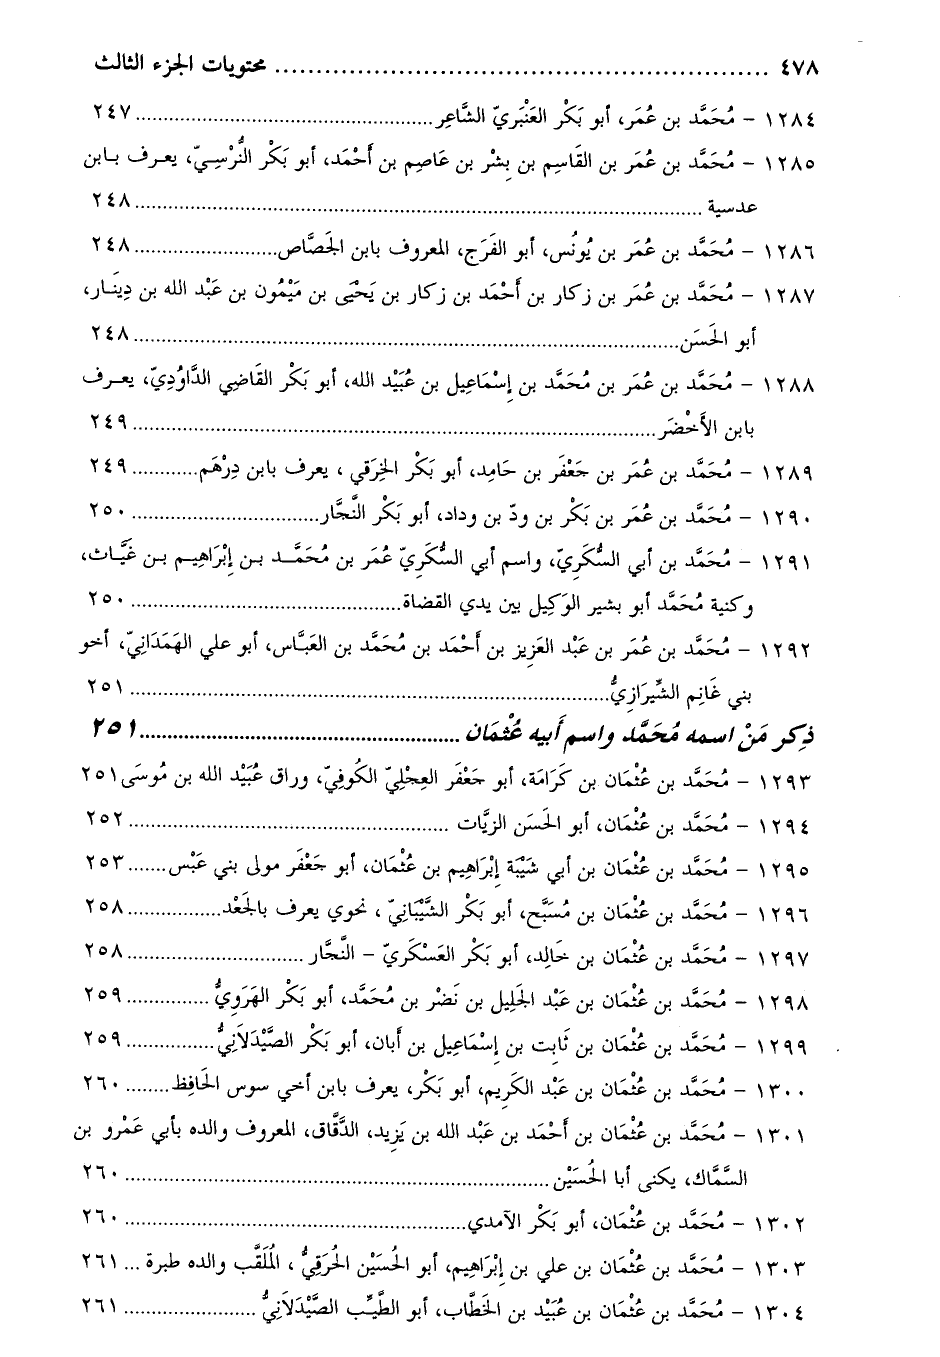 ٤٧٨ ........ محتويات الجزء الثالث
١٢٨٤ – مُحَمَّد بن عُمَر، أبو بَكْر العَنْبَريّ الشَّاعِر ........ ٢٤٧
١٢٨٥ – مُحَمَّد بن عُمَر بن القَاسِم بن بِشْر بن عَاصِم بن أَحْمَد، أبو بَكْر النُّرْسِيّ، يعـرف بـابن
عدسية ........ ٢٤٨
١٢٨٦ – مُحَمَّد بن عُمَر بن يُونُس، أبو الفَرَج، المعروف بابن الجَصَّاص ........ ٢٤٨
١٢٨٧ – مُحَمَّد بن عُمَر بن زكار بن أَحْمَد بن زكار بن يَحْيَى بن مَيْمُون بن عَبْد الله بن دِينَـار،
أبو الحَسَن ........ ٢٤٨
١٢٨٨ – مُحَمَّد بن عُمَر بن مُحَمَّد بن إِسْمَاعِيل بن عُبَيْد الله، أبو بَكْر القَاضِي الدَّاوُدِيّ، يعـرف
بابن الأَخْضَر ........ ٢٤٩
١٢٨٩ – مُحَمَّد بن عُمَر بن جَعْفَر بن حَامِد، أبو بَكْر الخِرَقي ، يعرف بابن دِرْهَم ........ ٢٤٩
١٢٩٠ – مُحَمَّد بن عُمَر بن بَكْر بن ودّ بن وداد، أبو بَكْر النَّجَّار ........ ٢٥٠
١٢٩١ – مُحَمَّد بن أبي السُّكَرِيّ، واسم أبي السُّكَرِيّ عُمَر بن مُحَمَّـد بـن إِبْرَاهِيـم بـن غَيَّـاث،
وكنية مُحَمَّد أبو بشير الوَكِيل بين يدي القضاة ........ ٢٥٠
١٢٩٢ – مُحَمَّد بن عُمَر بن عَبْد العَزِيز بن أَحْمَد بن مُحَمَّد بن العَبَّاس، أبو علي الهَمَدَانِيّ، أخو
بني غَانِم الشِّيرَازِيُّ ........ ٢٥١
ذِكر مَنْ اسمه مُحَمَّد واسم أَبيه عُثْمَان ........ ٢٥١
١٢٩٣ – مُحَمَّد بن عُثْمَان بن كَرَامَة، أبو جَعْفَر العِجْلِيّ الكُوفِيّ، وراق عُبَيْد الله بن مُوسَى ٢٥١
١٢٩٤ – مُحَمَّد بن عُثْمَان، أبو الحَسَن الزيَّات ........ ٢٥٢
١٢٩٥ – مُحَمَّد بن عُثْمَان بن أبي شَيْبَة إِبْرَاهِيم بن عُثْمَان، أبو جَعْفَر مولى بني عَبْس ....... ٢٥٣
١٢٩٦ – مُحَمَّد بن عُثْمَان بن مُسَبَّح، أبو بَكْر الشَّيْبَانِيّ ، نحوي يعرف بالجَعْد ........ ٢٥٨
١٢٩٧ – مُحَمَّد بن عُثْمَان بن خَالِد، أبو بَكْر العَسْكَريّ – النَّجَّار ........ ٢٥٨
١٢٩٨ – مُحَمَّد بن عُثْمَان بن عَبْد الجَلِيل بن نَضْر بن مُحَمَّد، أبو بَكْر الهَرَوِيُّ ........ ٢٥٩
١٢٩٩ – مُحَمَّد بن عُثْمَان بن ثَابِت بن إِسْمَاعِيل بن أَبان، أبو بَكْر الصَّيْدَلاَنِيُّ ........ ٢٥٩
١٣٠٠ – مُحَمَّد بن عُثْمَان بن عَبْد الكَرِيم، أبو بَكْر، يعرف بابن أخي سوس الحَافِظ ........ ٢٦٠
١٣٠١ – مُحَمَّد بن عُثْمَان بن أَحْمَد بن عَبْد الله بن يَزِيد، الدَّقَّاق، المعروف والده بأبي عَمْرو بن
السَّمَّاك، يكنى أبا الحُسَيْن ........ ٢٦٠
١٣٠٢ – مُحَمَّد بن عُثْمَان، أبو بَكْر الآمدي ........ ٢٦٠
١٣٠٣ – مُحَمَّد بن عُثْمَان بن علي بن إِبْرَاهِيم، أبو الحُسَيْن الحُرَقِيُّ ، المُلَقَّب والده طبرة ... ٢٦١
١٣٠٤ – مُحَمَّد بن عُثْمَان بن عُبَيْد بن الخَطَّاب، أبو الطَّيِّب الصَّيْدَلاَنِيُّ ........ ٢٦١